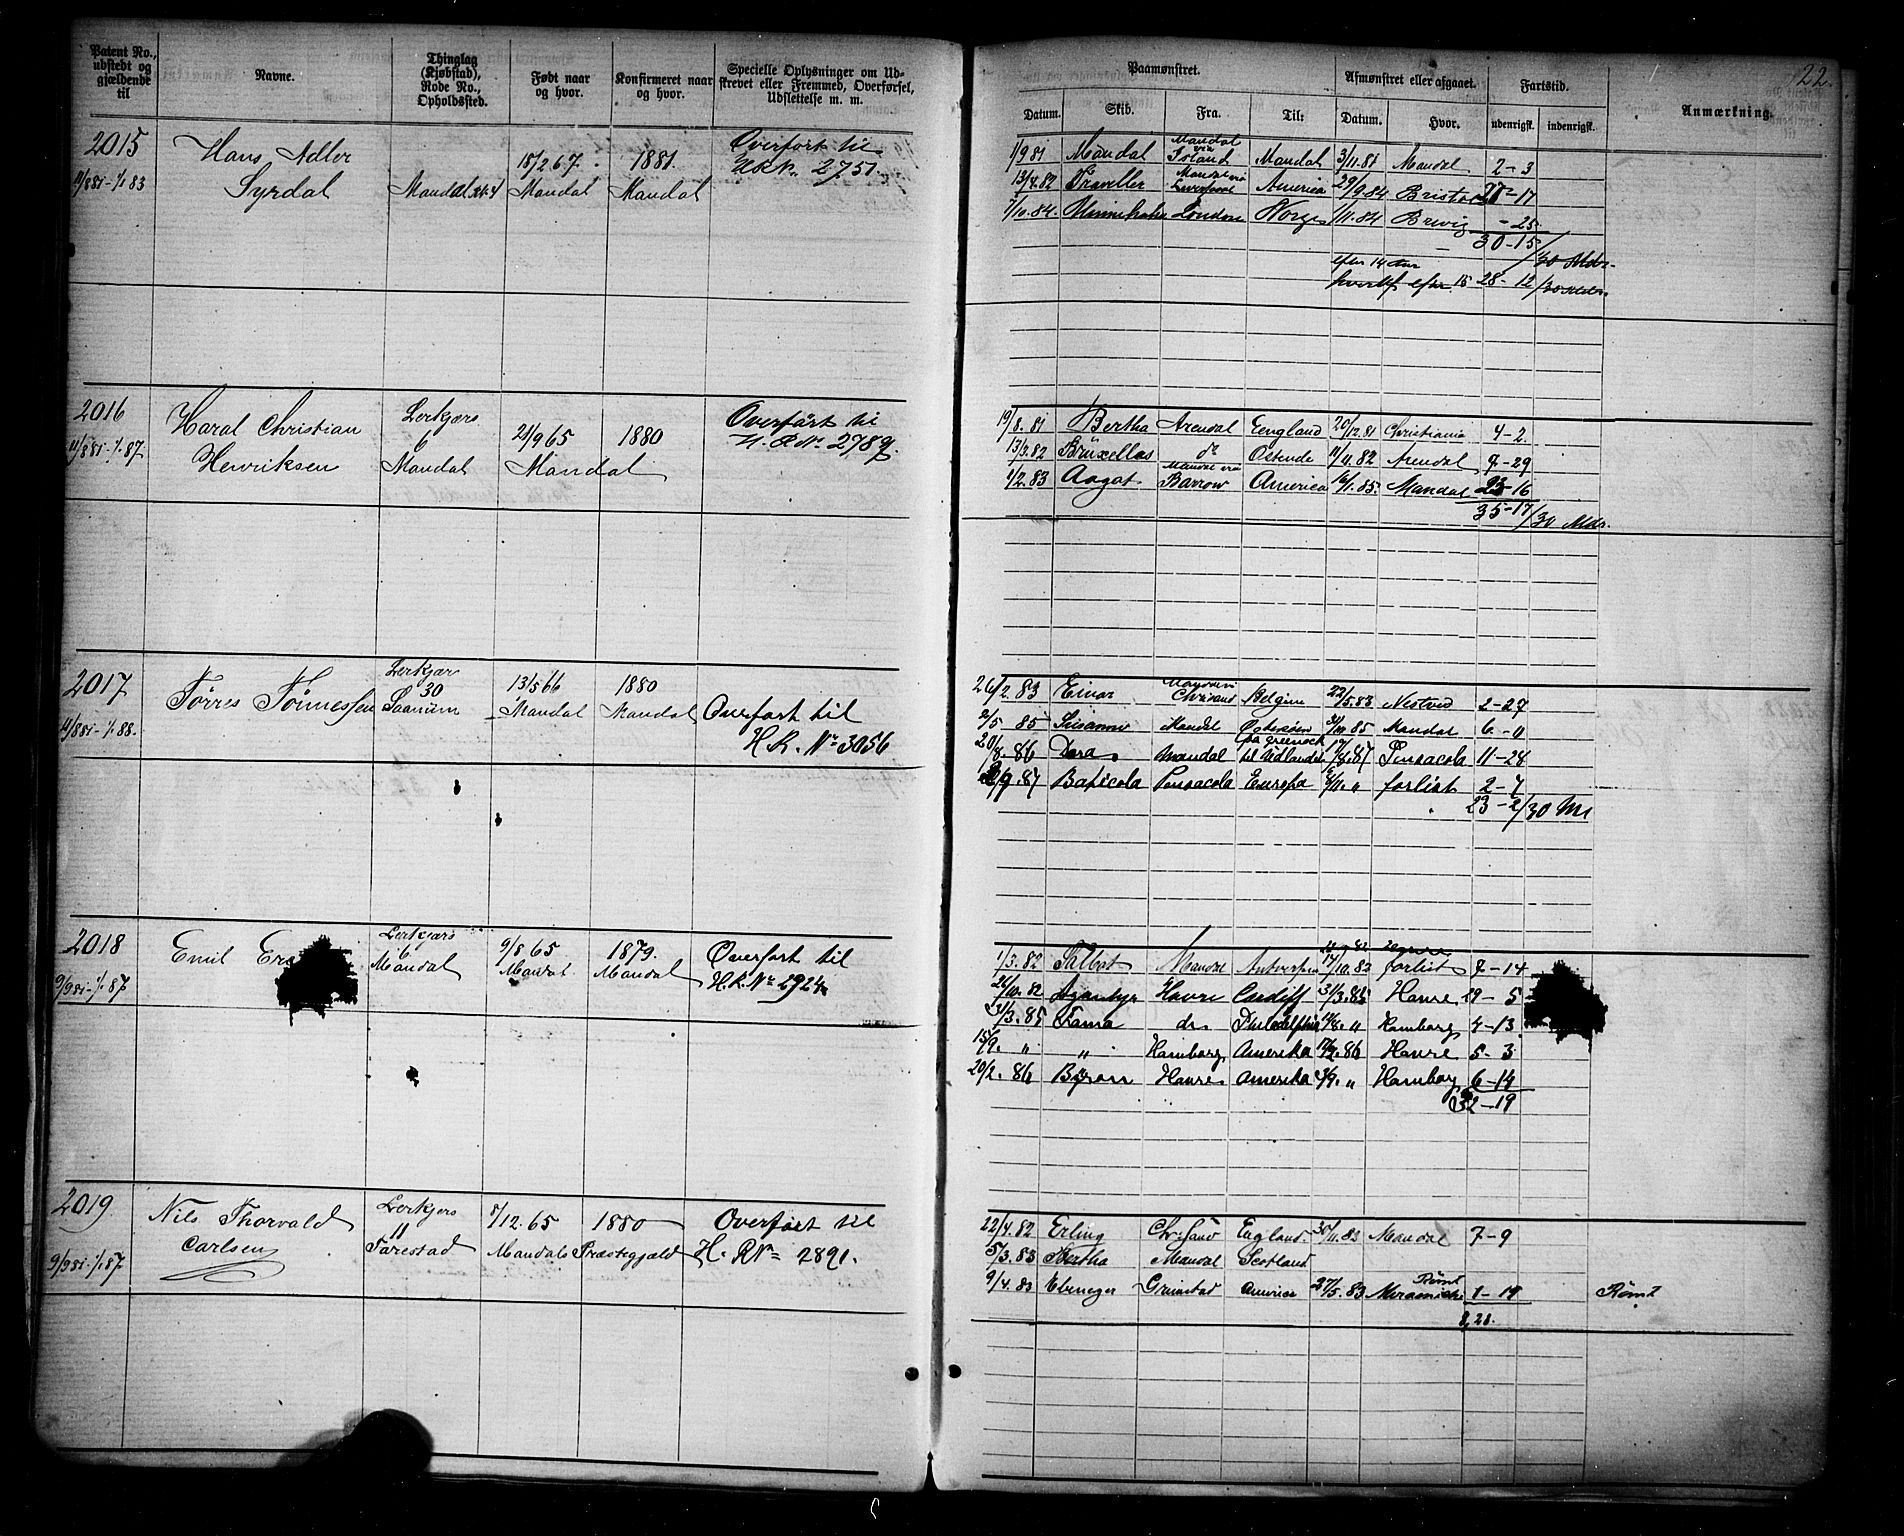 22.
Patent No., udstedt og gjældende til
Navne.
Thinglag (Kjøbstad), Rode No., Opholdssted.
Født naar og hvor.
Konfirmeret naar og hvor.
Specielle Oplysninger om Udskrevet eller Fremmed, Overførsel, Udslettelse m. m.
Paamønstret.
Afmønstret eller afgaaet.
Fartstid.
Anmærkning.
Datum. Skib. Fra. Til: Datum. Hvor. udenrigsk. indenrigsk.
2015 Hans Adler 18/2 67. 1881. Overført til
11/8 81-1/1 83 Syrdal Mandal Mandal Mandal 2751.
1/9 81 Mandal Mandal via Island Mandal 3/11.81 Mandal 2-3
13/4.82 Traveller Mandal via Liverpool America 29/9.84 Bristol 27-17
7/10.84. Minnehaha London Norge 1/11.84 Brevig -25
30-15/30 Mdr.
efter 14 Aar
hvoraf efter 15 28-12/30 Mdr.
2016 Haral Christian Lerkjærs 6 21/9 65 1880 Overført til
11/8 81-1/1.87 Henriksen Mandal Mandal H.R.Nr. 2789.
19/8.81 Bertha Arendal Eengland 20/12.81 Christiania 4-2
13/3.82 Brüxellas do Ostende 11/11.82 Arendal 7-29
1/2.83 Aagat Mandal via Barrow America 16/1.85. Mandal 23-16
35-17/30 Mdr.
2017 Tørres Tønnessen Lerkjær 30 13/5 66 1880
11/8 81-1/1.88. Saanum Mandal Mandal Overført til
H.R. Nr 3056
26/2.83 Einar Chrisand Belgien 22/5.83 Nestved 2-27
2/5 85 Susanne Mandal Østersøen 31/10 85 Mandal 6-0
20/8.86 Dora Mandal fra Greenock til Udlandet 17/8.87 Pensacola 11-28
2/9.87 Bapicola Pensacola Europa 8/11. " forlist 2-7
23-2/30 Md
2018 Emil Lerkjærs 6 9/8 65 1879. Overført til
9/9 81-1/1.87 Mandal Mandal Mandal H.R.Nr 2924
1/3.82 Talbot Mandal Antverpen 14/10.82 forlist 7-14
26/10.82 Havre Cardiff 31/3.85 Havre 29-5
31/3.85 Fama do. Philadelphia 12/8. " Hamborg 4-13
15/9. " " Hamborg Amerika 17/2.86 Havre 5-3
20/2.86 Byron Havre Amerika 3/9. " Hamborg 6-14
32-19
2019 Nils Thorvald Lerkjers 11 8/12.65 1880 Overført til
9/9 81-1/1 87 Carlsen Tarestad Mandals Præstegjæld H.RNr 2891.
22/4.82 Erling Chr.sand England. 30/11.82 Mandal 7-9
5/3.83 Bertha Mandal Scotland
9/4.83 Ebeneger Grimstad America 27/5.83 Rømt Miramichi 1-19 Rømt
8,28.